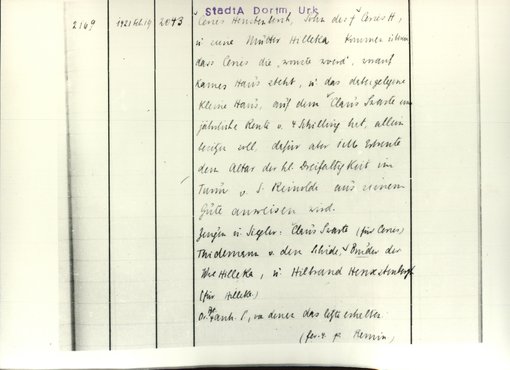 StadtA Dortm, Urk
2169 1421 Feb.19 2093 Cenes Henxtenberch, Sohn des † Cenes H,
u seine Mutter Hilleka kommen überein
dass Cenes die worauf
Hans steht, u das dabei gelegene
kleine Haus, auf dem Claus Swarte eine
jährliche Rente v. 4 Schilling hat, allein
soll, dafür aber selbe Erbrente
dem Altar der hl. Dreifaltigkeit im
Turm v. S. Reinolde aus seinem
Gute anweisen wird.
Zeugen u Siegler: Claus Swarte (für Cenes)
Thidemann v. den Schide, Bruder der
Hilleka, u Hilbrand Henxstenbergh
(für Hilleka)
Or. anh. S, von denen das letzte erhalten